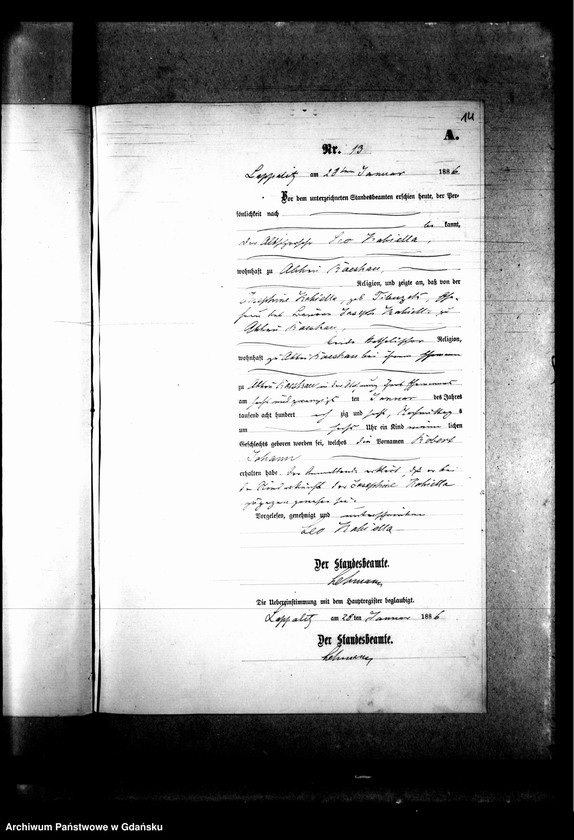 14
A.
Nr. 13
am 28ten Januar 1886.
Vor dem unterzeichneten Standesbeamten erschien heute, der Per-
sönlichkeit nach
be kannt,
der Leo Kobiella,
wohnhaft zu
Religion, und zeigte an, daß von der
Josephine Kobiella, geb. Ehe-
frau des Joseph Kobiella zu
beide katholischer Religion,
wohnhaft zu bei ihrem Ehemann
zu in der Wohnung ihres Ehemannes
am sechs und zwanzigsten ten Januar des Jahres
tausend acht hundert acht zig und sechs, Nachmittag s
um sechs Uhr ein Kind männ lichen
Geschlechts geboren worden sei, welches die Vornamen Robert
Johann
erhalten habe. Der Anmeldende erklärt, daß er bei
der Niederkunft der Josephine Kobiella
zugegen gewesen sei.
Vorgelesen, genehmigt und unterschrieben
Leo Kobiella
Der Standesbeamte.
Die Uebereinstimmung mit dem Hauptregister beglaubigt.
am 28ten Januar 1886.
Der Standesbeamte.
Archiwum Państwowe w Gdańsku